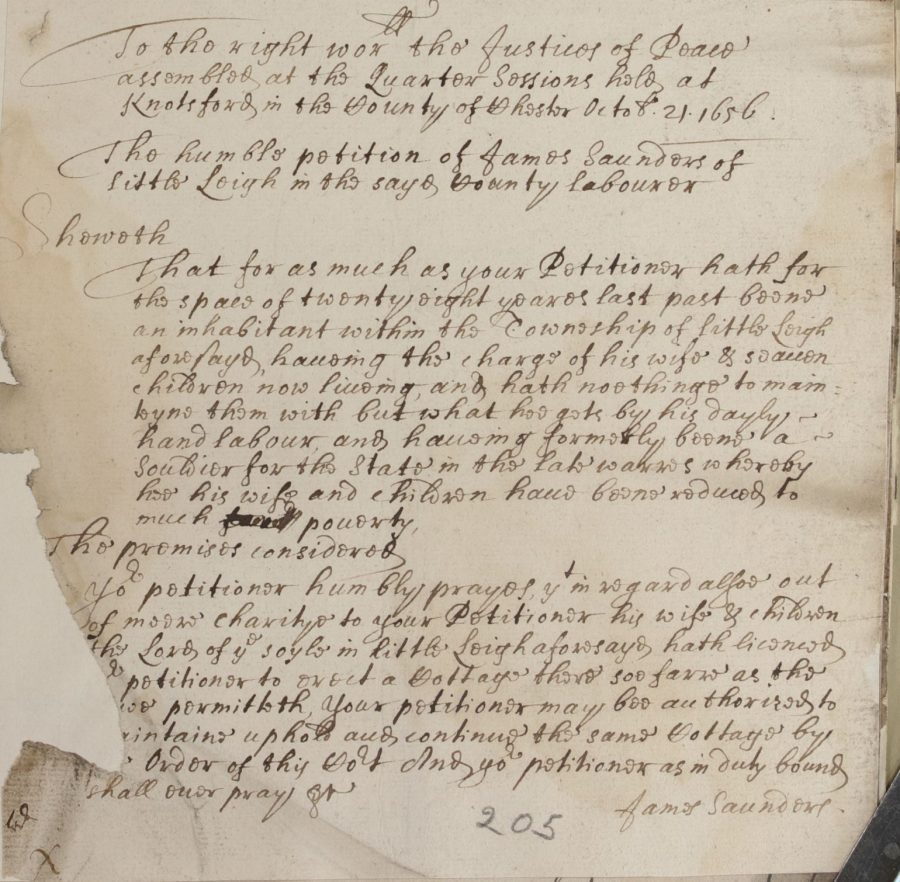 To the right worll the Justices of Peace
assembled at the Quarter Sessions held at
Knotsford in the County of Chester Octob'r. 21. 1656.
The humble petition of James Saunders of
little Leigh in the sayd County labourer
Sheweth
That for as much as your Petitioner hath for
the space of twenty eight yeares last past beene
an inhabitant within the Towneship of little Leigh
aforesayd, haueing the charge of his wife & seauen
children now liueing, and hath noethinge to main=
teyne them with but what hee gets by his dayly
hand labour, and haueing formerly beene a
Souldier for the State in the late warres whereby
hee his wife and children haue beene reduced to
much pouerty,
The premises considered
Yor petitioner humbly prayes, yt in regard alsoe out
of meere charitye to your Petitioner his wife & children
the Lord of ye soyle in little Leigh aforesayd hath licenced
petitioner to erect a Cottage there soe farre as the
permitteth, Your petitioner may bee authorized to
aintaine uphold and continue the same Cottage by
Order of this Co'rt And yor petitioner as in duty bound
shall euer pray &c
James Saunders.
205
X